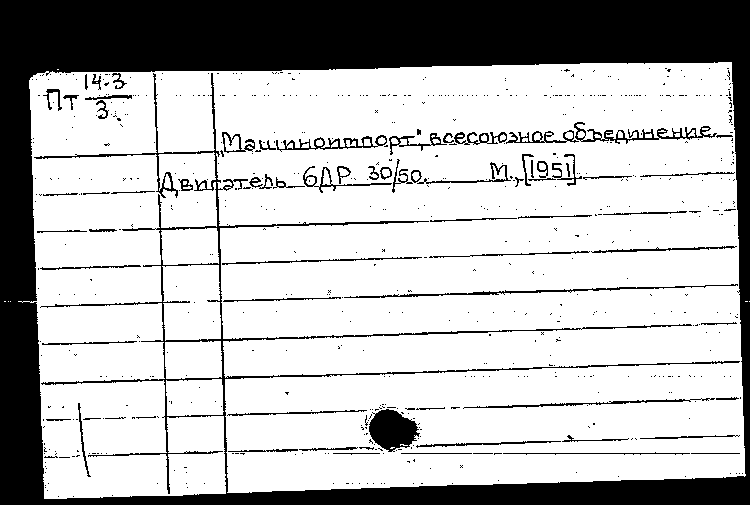 Пт 14-3
3
„Машиноимпорт", всесоюзное объединение.
Двигатель 6ДР 30/50. М., [1951]